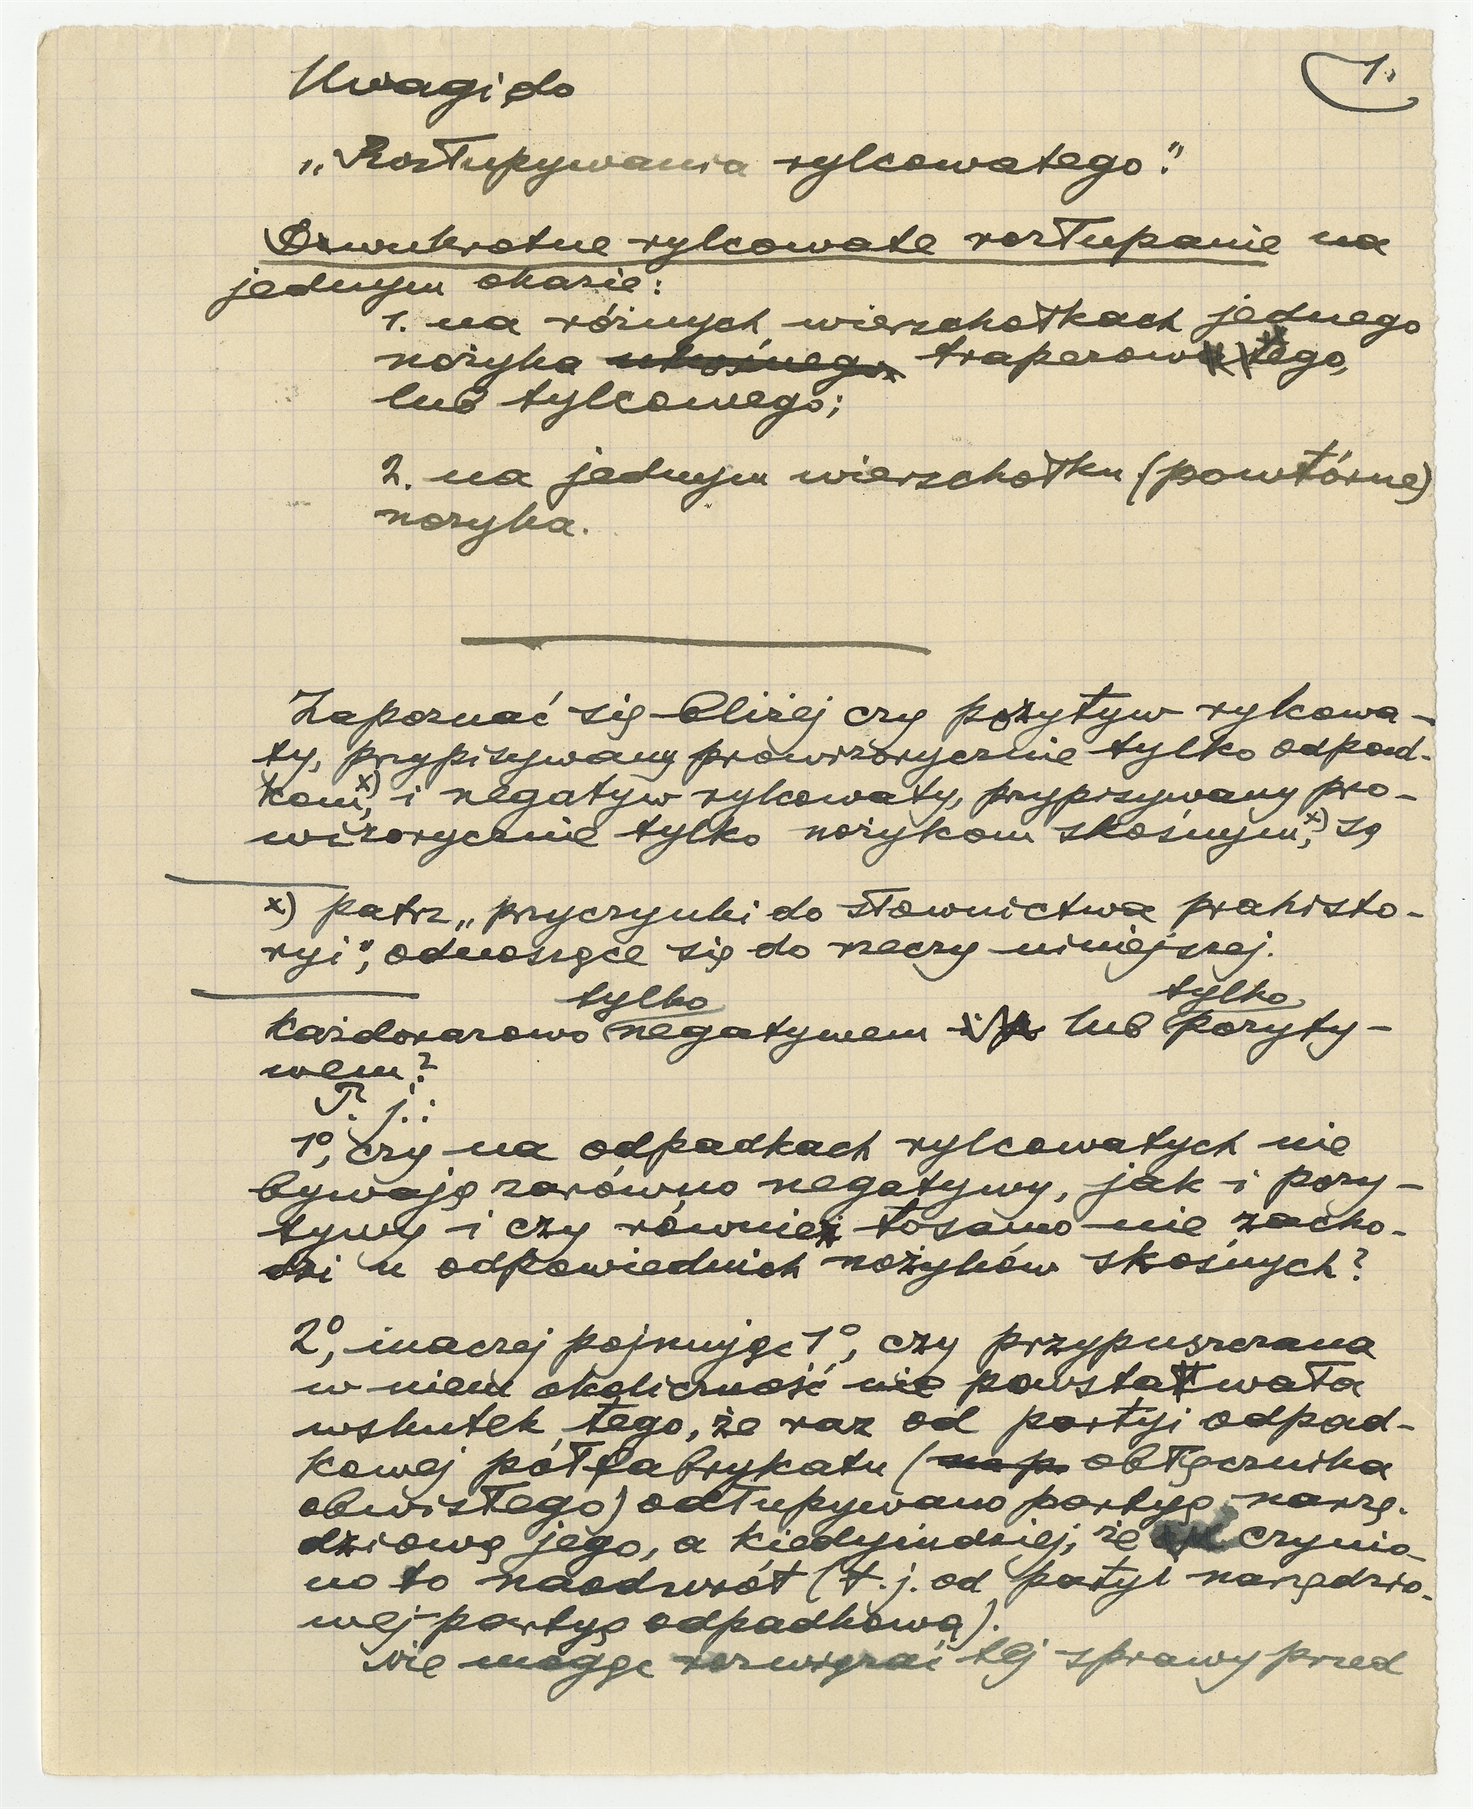 1.
Uwagi do
„Rozłupywania rylcowatego".
Dwukrotne rylcowate rozłupanie na
jednym okazie:
1. na różnych wierzchołkach jednego
nożyka trapezowatego,
lub tylcowego;
2. na jednym wierzchołku (powtórne)
nożyka.
Zapoznać się bliżej czy pozytyw rylcowa-
ty, przypisywany prowizorycznie tylko odpad-
kom,x) i negatyw rylcowaty, przypisywany pro-
wizorycznie tylko nożykom skośnym,x) są
x) patrz „przyczynki do słownictwa prahisto-
ryi", odnoszące się do rzeczy niniejszej.
tylko tylko
każdorazowo negatywem lub pozyty-
wem?
T. j.:
1º, czy na odpadkach rylcowatych nie
bywają zarówno negatywy, jak i pozy-
tywy i czy również tosamo nie zacho-
dzi u odpowiednich nożyków skośnych?
2º, inaczej pojmując 1º, czy przypuszczana
w niem okoliczność nie powstawała
wskutek tego, że raz od partyi odpad-
kowej półfabrykatu (obłęcznika
obwisłego) odłupywano partyę narzę-
dziową jego, a kiedyindziej, że czynio-
no to naodwrót (t. j. od partyi narzędzio-
wej partyę odpadkową).
Nie mogąc rozwiązać tej sprawy przed